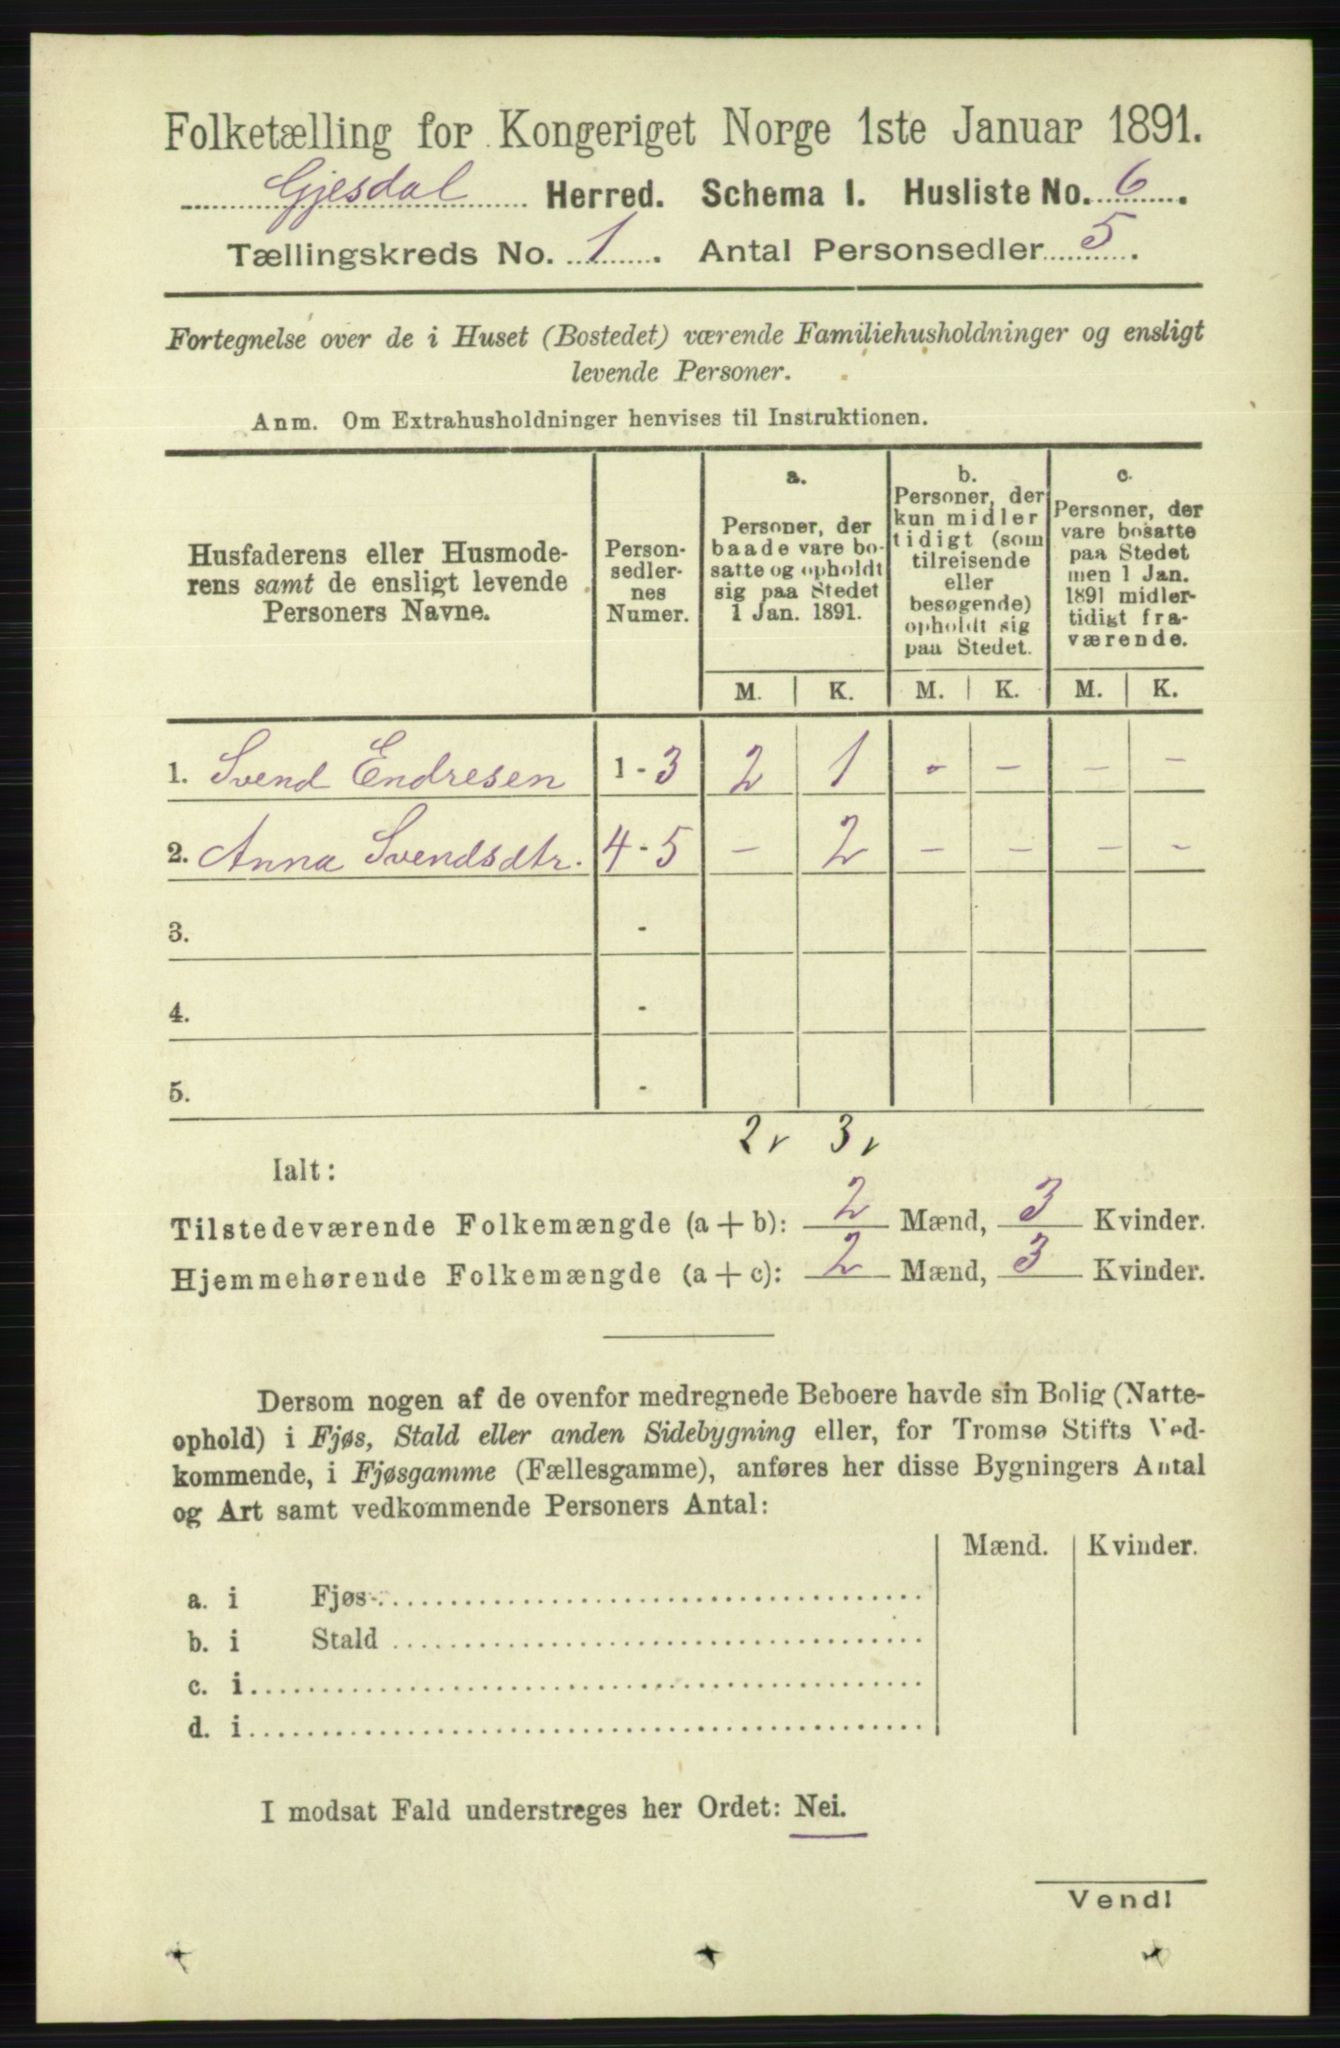 Folketælling for Kongeriget Norge 1ste Januar 1891.
Gjesdal Herred. Schema I. Husliste No. 6.
Tællingskreds No. 1. Antal Personsedler 5.
Fortegnelse over de i Huset (Bostedet) værende Familiehusholdninger og ensligt
levende Personer.
Anm. Om Extrahusholdninger henvises til Instruktionen.
Husfaderens eller Husmode-
rens samt de ensligt levende
Personers Navne.
Person-
sedler-
nes
Numer.
a.
Personer, der
baade vare bo-
satte og opholdt
sig paa Stedet
1 Jan. 1891.
b.
Personer, der
kun midler
tidigt (som
tilreisende
eller
besøgende)
opholdt sig
paa Stedet.
c.
Personer, der
vare bosatte
paa Stedet
men 1 Jan.
1891 midler-
tidigt fra-
værende.
M. K. M. K. M. K.
1. Svend Endresen 1-3 2 1 - - - -
2. Anna Svendsdtr. 4-5 - 2 - - - -
3. -
4. -
5. -
2 v 3 v
Ialt:
Tilstedeværende Folkemængde (a+b): 2 Mænd, 3 Kvinder.
Hjemmehørende Folkemængde (a+c): 2 Mænd, 3 Kvinder.
Dersom nogen af de ovenfor medregnede Beboere havde sin Bolig (Natte-
ophold) i Fjøs, Stald eller anden Sidebygning eller, for Tromsø Stifts Ved-
kommende, i Fjøsgamme (Fællesgamme), anføres her disse Bygningers Antal
og Art samt vedkommende Personers Antal:
Mænd. Kvinder.
a. i Fjøs
b. i Stald
c. i
d. i
I modsat Fald understreges her Ordet: Nei.
Vend!